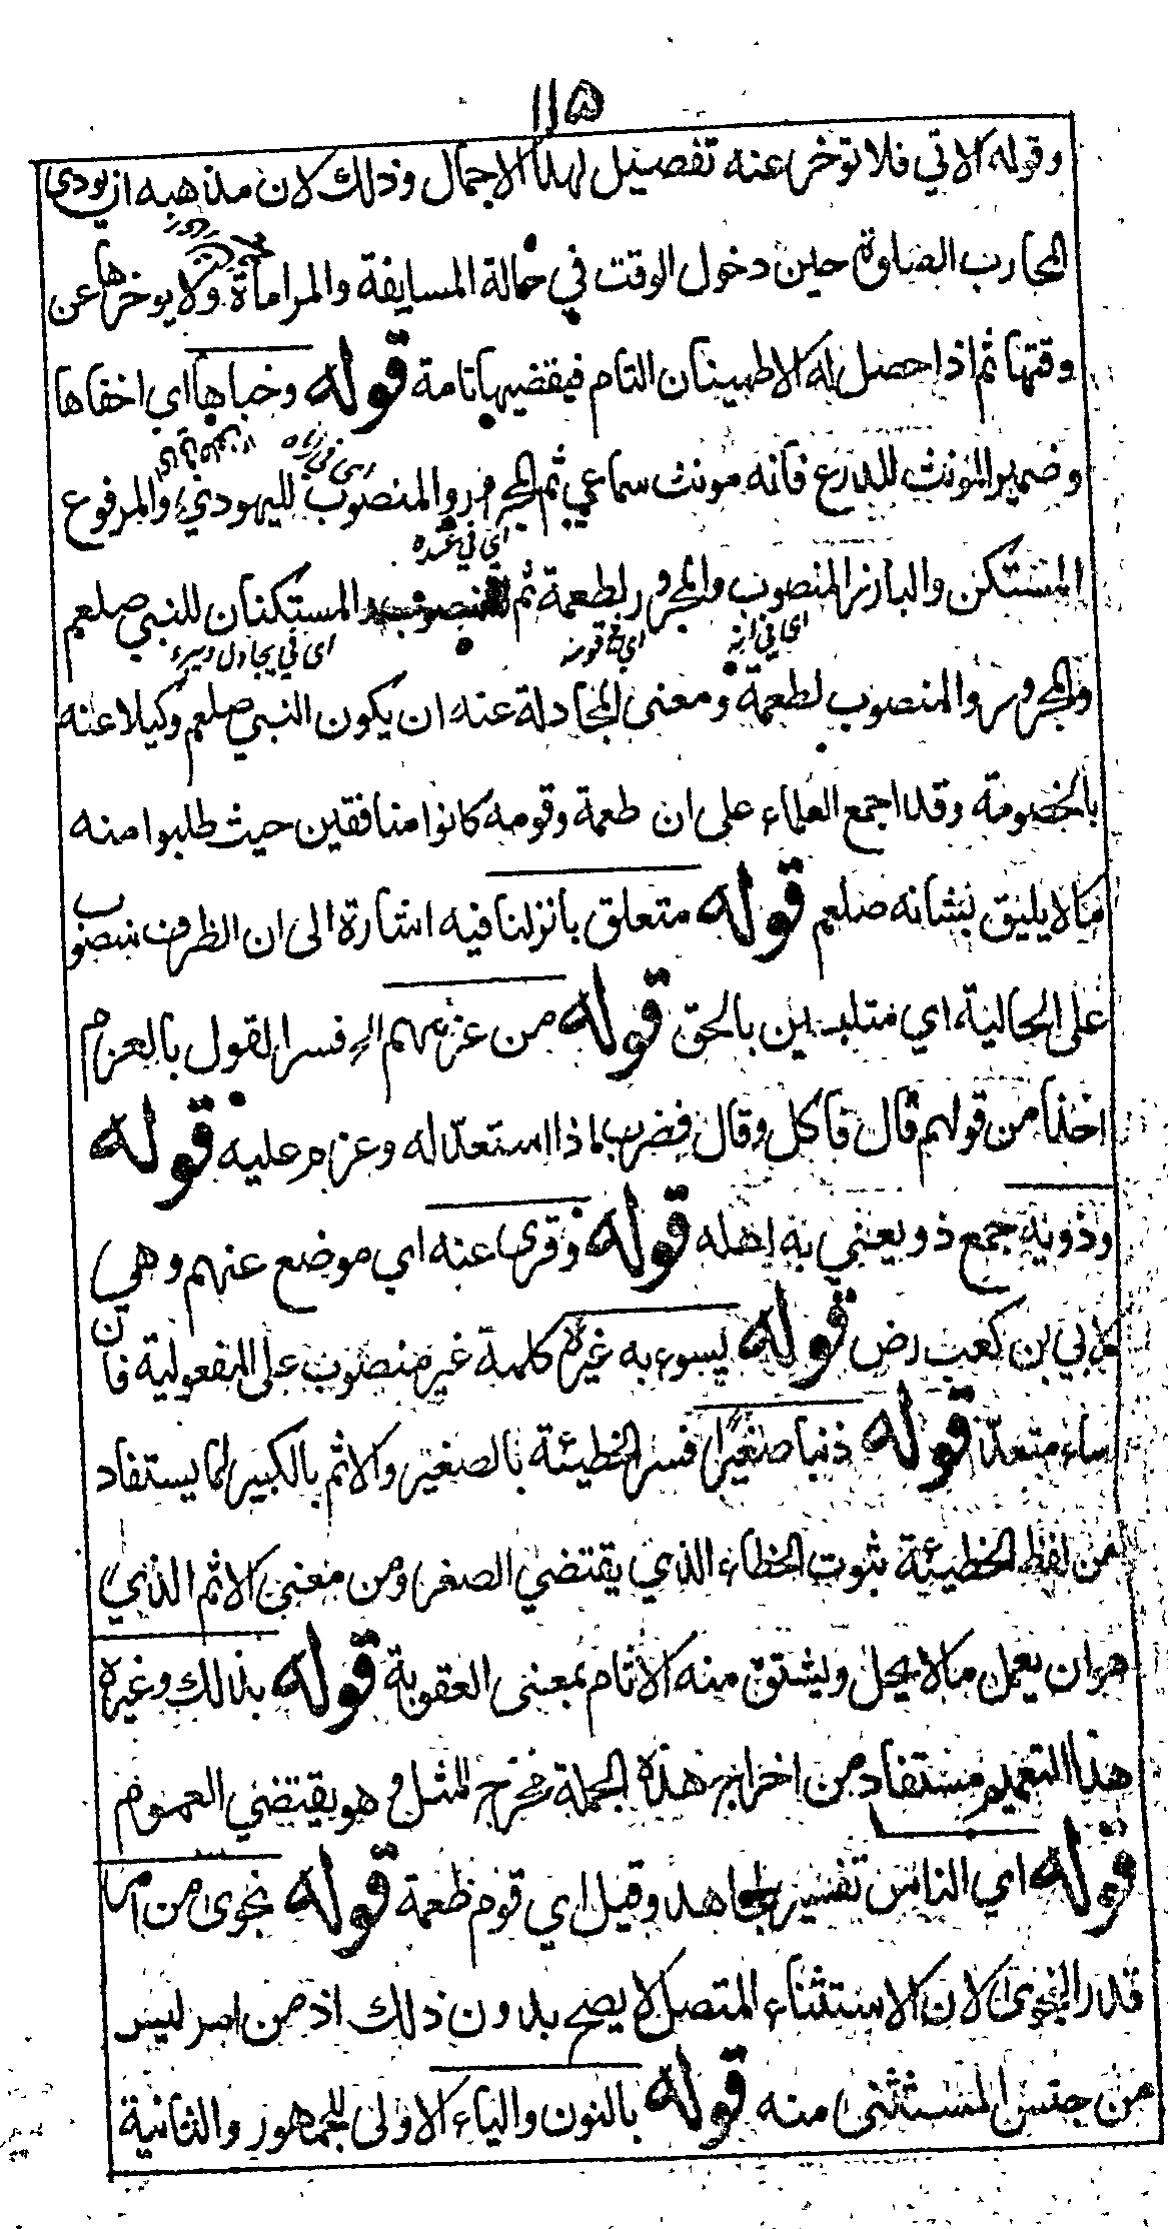 ١١۵
وقوله الاتي فلا توخر عنه تفصيل لهذا الاجمال وذلك لان مذهبه ان يودي
المحارب الصلوة حين دخول الوقت في حالة المسايفة والمراماة ولا يوخرها عن
وقتها ثم اذا حصل له الاطمينان التام فيقضيها تامة قوله وخباها اي اخفاها
وضمير المونث للدرع فانه مونث سماعي ثم المجرور والمنصوب لليهودي والمرفوع
اي في عنده
المستكن والبارز المنصوب والمجرور لطعمة ثم المنصوب والمستكنان للنبي صلعم
اي في انه اي في قومه اي في يجادل ويبرء
والمجرور والمنصوب لطعمة ومعنى المجادلة عنه ان يكون النبي صلعم وكيلا عنه
بالخصومة وقد اجمع العلماء على ان طعمة وقومه كانوا منافقين حيث طلبوا منه
مالا يليق بشانه صلعم قوله متعلق بانزلنا فيه اشارة الى ان الظرف منصوب
على الحالية اي متلبسين بالحق قوله من عزمهم الخ فسر القول بالعزم
اخذا من قولهم قال فاكل وقال فضرب اذا استعد له وعزم عليه قوله
وذويه جمع ذو يعني به اهله قوله وقرى عنه اي موضع عنهم وهي
لابي بن كعب رض قوله يسوء به غيره كلمة غير منصوب على المفعولية فان
ساء متعد قوله ذنبا صغيرا فسر الخطيئة بالصغير والاثم بالكبير لما يستفاد
من لفظ الخطيئة ثبوت الخطاء الذي يقتضي الصغر ومن معنى الاثم الذي
هو ان يعمل مالا يحل ويشتق منه الاثام بمعنى العقوبة قوله بذالك وغيره
هذا التعميم مستفاد من اخراج هذه الجملة مخرج المثل وهو يقتضي العموم
قوله اي الناس تفسير لمجاهد وقيل اي قوم طعمة قوله نجوى من امر
قدر النجوى لان الاستثناء المتصل لا يصح بدون ذلك اذ من امر ليس
من جنس المستثنى منه قوله بالنون والياء الاولى للجمهور والثانية